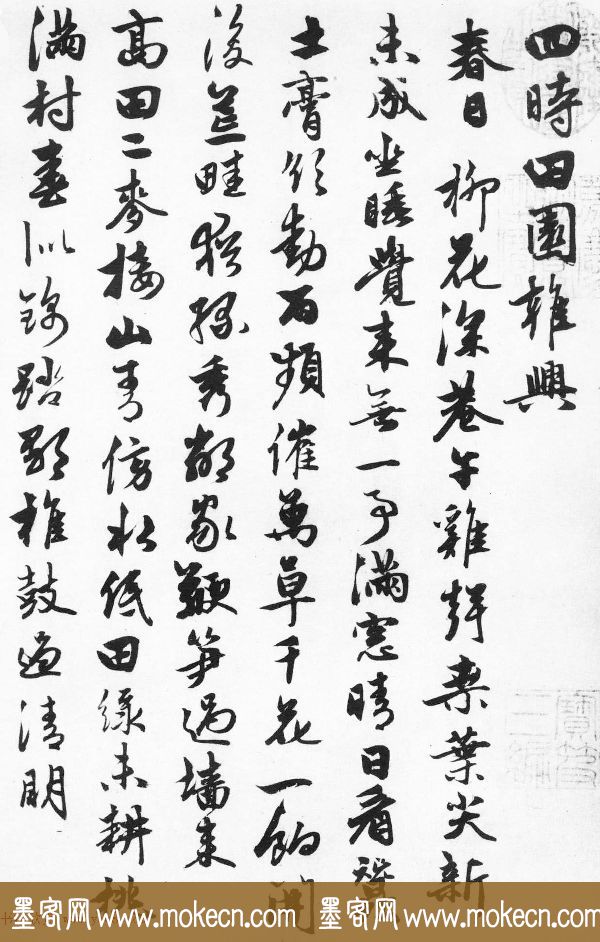 四時田園雜興
春日 柳花深巷午雞聲桑葉尖新
未成坐睡覺來無一事滿窓晴日看蠶
土膏欲動雨頻催萬草千花一餉開
後荒畦猶綠秀鄰家鞭笋過墻來
高田二麥接山青傍水低田綠未耕桃
滿村春似錦踏歌椎鼓過清明
寶笈三編
墨客网 www.mokecn.com 墨客网 www.mokecn.com